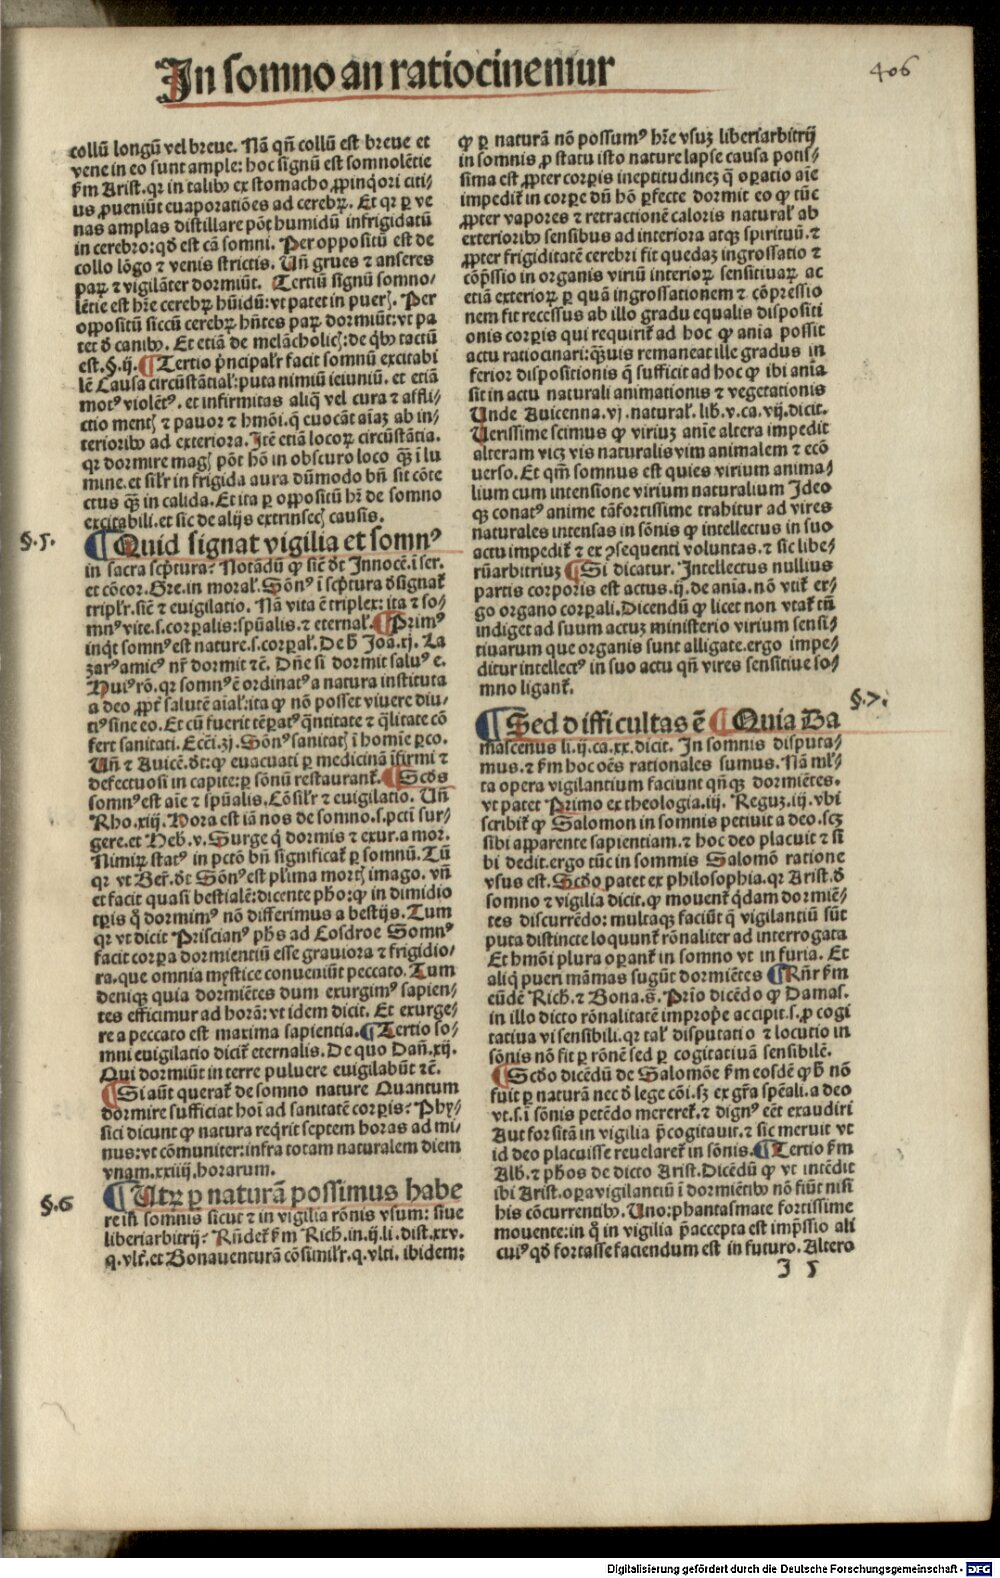 In somno an ratiocinemur
406
collū longū vel breue. Nā qn̄ collū est breue et
vene in eo sunt ample: hoc signū est somnolētie
ẜm Arist. qꝛ in talibꝰ ex stomacho ꝓpinqͥori citi/
us ꝓueniūt euaporatiōes ad cerebꝝ. Et qꝛ ꝑ ve
nas amplas distillare pōt humidū infrigidatū
in cerebro: qd̓ est cā somni. Per oppositū est de
collo lōgo ⁊ venis strictis. Un̄ grues ⁊ anseres
paꝝ ⁊ vigilāter dormiūt. Tertiū signū somno/
lētie est hr̄e cerebꝝ hūidū: vt patet in pueris. Per
oppositū siccū cerebꝝ hn̄tes paꝝ dormiūt: vt pa
tet d̓ canibꝰ. Et etiā de melācholicis: de qͥbꝰ tactū
est. §. ij. ¶ Tertio pͥncipalr̓ facit somnū excitabi
lē Causa circūstātial̓: puta nimiū ieiuniū. et etiā
motꝰ violētꝰ. et infirmitas aliq̄ vel cura ⁊ affli/
ctio mentis ⁊ pauor ⁊ hmōi. q̄ euocāt aīaꝫ ab in/
terioribꝰ ad exteriora. Itē etiā locoꝝ circūstātia.
qꝛ dormire magis pōt hō in obscuro loco qͣꝫ ī lu
mine. et silr̓ in frigida aura dūmodo bn̄ sit cōte
ctus qͣꝫ in calida. Et ita ꝑ oppositū hr̄ de somno
excitabili. et sic de alijs extrinsecis causis.
§.5.
¶ Quid signat vigilia et somnꝰ
in sacra scpͥtura? Notādū ꝙ sicͣ d̓t Innocē. ī ser.
et cōcor. Gre. in moral̓. Sōnꝰ ī scpͥtura d̓signat̓
triplr̓. sicͣ ⁊ euigilatio. Nā vita ē triplex: ita ⁊ so/
mnꝰ vite. s. corꝑalis: spūalis. ⁊ eternal̓. ¶ Primꝰ
inqͥt somnꝰ est nature. s. corꝑal̓. De hͦ Joā. xj. La
zarꝰ amicꝰ nr̄ dormit ⁊c̄. Dn̄e si dormit saluꝰ e.
Huiꝰ rō. qꝛ somnꝰ ē ordinatꝰ a natura instituta
a deo ꝓpt̓ salutē aīal̓: ita ꝙ nō posset viuere diu/
tiꝰ sine eo. Et cū fuerit tēꝑatꝰ qͣntitate ⁊ qͣlitate cō
fert sanitati. Ecc̄i. 31. Sōnꝰ sanitatis ī homīe ꝑco.
Un̄ ⁊ Auicē. d̓t: ꝙ euacuati ꝑ medicinā ifirmi ⁊
defectuosi in capite: ꝑ sōnū restaurant̓. ¶ Scd̓s
somnꝰ est aīe ⁊ spūalis. Cōsilr̓ ⁊ euigilatio. Un̄
Rho. xiij. Hora est iā nos de somno. s. pcti sur/
gere. et Heb. v. Surge qͥ dormis ⁊ exur. a mor.
Nimiꝝ statꝰ in pctō bn̄ significat̓ ꝑ somnū. Tū
qꝛ vt Ber̄. d̓t Sōnꝰ est plͥma mortis imago. vn̄
et facit quasi bestialē: dicente pho: ꝙ in dimidio
tꝑis qͦ dormimꝰ nō differimus a bestijs. Tum
qꝛ vt dicit Priscianꝰ phs̄ ad Cosdroe Somnꝰ
facit corꝑa dormientiū esse grauiora ⁊ frigidio/
ra. que omnia mystice conueniūt peccato. Tum
deniqꝫ quia dormiētes dum exurgimꝰ sapien/
tes efficimur ad horā: vt idem dicit. Et exurge/
re a peccato est maxima sapientia. ¶ Tertio so/
mni euigilatio dicit̓ eternalis. De quo Dan̄. xij.
Qui dormiūt in terre puluere euigilabūt ⁊c̄.
¶ Si aūt querat̓ de somno nature Quantum
dormire sufficiat hoī ad sanitatē corꝑis? Phy/
sici dicunt ꝙ natura reqͥrit septem horas ad mi/
nus: vt cōmuniter: infra totam naturalem diem
vnam. xxiiij. horarum.
§.6
¶ Utꝝ ꝑ naturā possimus habe
re in somnis sicut ⁊ in vigilia rōnis vsum: siue
liberiarbitrij? Rn̄det̓ ẜm Rich. in. ij. li. dist. xxv.
q. vlt̓. et Bonauenturā cōsimilr̓. q. vlti. ibidem:
ꝙ ꝑ naturā nō possumꝰ hr̄e vsuꝫ liberiarbitrij
in somnis ꝓ statu isto nature lapse causa potis/
sima est ꝓpter corꝑis ineptitudineꝫ q̄ oꝑatio aīe
impedit̓ in corꝑe dū hō ꝑfecte dormit eo ꝙ tūc
ꝓpter vapores ⁊ retractionē caloris natural̓ ab
exterioribꝰ sensibus ad interiora atqꝫ spirituū. ⁊
ꝓpter frigiditatē cerebri fit quedaꝫ ingrossatio ⁊
cōp̄ssio in organis viriū interioꝝ sensitiuaꝝ ac
etiā exterioꝝ ꝑ quā ingrossationem ⁊ cōpressio
nem fit recessus ab illo gradu equalis dispositi
onis corꝑis qui requirit̓ ad hoc ꝙ anīa possit
actu ratiocinari: qͣuis remaneat ille gradus in
ferior dispositionis q̄ sufficit ad hoc ꝙ ibi anīa
sit in actu naturali animationis ⁊ vegetationis
Unde Auicenna. vj. natural̓. lib. v. ca. vij. dicit.
Uerissime scimus ꝙ viriuꝫ anīe altera impedit
alteram vicꝫ vis naturalis vim animalem ⁊ ecō
uerso. Et qm̄ somnus est quies virium anima/
lium cum intensione virium naturalium Ideo
qꝫ conatꝰ anime tāfortissime trahitur ad vires
naturales intensas in sōnis ꝙ intellectus in suo
actu impedit̓ ⁊ ex ꝯsequenti voluntas. ⁊ sic libe/
rūarbitriuꝫ ¶ Si dicatur. Intellectus nullius
partis corporis est actus. ij. de anīa. nō vtit̓ er/
go organo corꝑali. Dicendū ꝙ licet non vtat̓ tn̄
indiget ad suum actuꝫ ministerio virium sensi/
tiuarum que organis sunt alligate. ergo impe/
ditur intellectꝰ in suo actu qn̄ vires sensitiue so/
mno ligant̓.
§.7.
¶ Sed difficultas ē ¶ Quia Da
mascenus li. ij. ca. xx. dicit. In somnis disputa/
mus. ⁊ ẜm hoc oēs rationales sumus. Nā ml̓/
ta opera vigilantium faciunt qn̄qꝫ dormiētes.
vt patet Primo ex theologia. iij. Reguꝫ. iij. vbi
scribit̓ ꝙ Salomon in somnis petiuit a deo. scꝫ
sibi apparente sapientiam. ⁊ hoc deo placuit ⁊ si
bi dedit. ergo tūc in sommis Salomō ratione
vsus est. Scd̓o patet ex philosophia. qꝛ Arist. d̓
somno ⁊ vigilia dicit. ꝙ mouent̓ qͥdam dormiē/
tes discurrēdo: multaqꝫ faciūt q̄ vigilantiū sūt
puta distincte loquunt̓ rōnaliter ad interrogata
Et hmōi plura oꝑant̓ in somno vt in furia. Et
aliqͥ pueri māmas sugūt dormiētes ¶ Rn̄r ẜm
eūdē Rich. ⁊ Bona. s̄. Prīo dicēdo ꝙ Damas.
in illo dicto rōnalitatē impropͥe accipit. s. ꝓ cogi
tatiua vi sensibili. qꝛ tal̓ disputatio ⁊ locutio in
sōnis nō fit ꝑ rōnē sed ꝑ cogitatiuā sensibilē.
¶ Scd̓o dicēdū de Salomōe ẜm eosdē ꝙ hͦ nō
fuit ꝑ naturā nec d̓ lege cōi. sꝫ ex gr̄a spēali. a deo
vt. s. ī sōnis petēdo mereret̓. ⁊ dignꝰ eēt exaudiri
Aut forsitā in vigilia p̄cogitauit. ⁊ sic meruit vt
id deo placuisse reuelaret̓ in sōnis. ¶ Tertio ẜm
Alb. ⁊ phōs de dicto Arist. Dicēdū ꝙ vt intēdit
ibi Arist. oꝑa vigilantiū ī dormiētibꝰ nō fiūt nisi
his cōcurrentibꝰ. Uno: phantasmate fortissime
mouente: in qͦ in vigilia p̄accepta est imp̄ssio ali
cuiꝰ qd̓ fortasse faciendum est in futuro. Altero
I 5
Digitalisierung gefördert durch die Deutsche Forschungsgemeinschaft - DFG